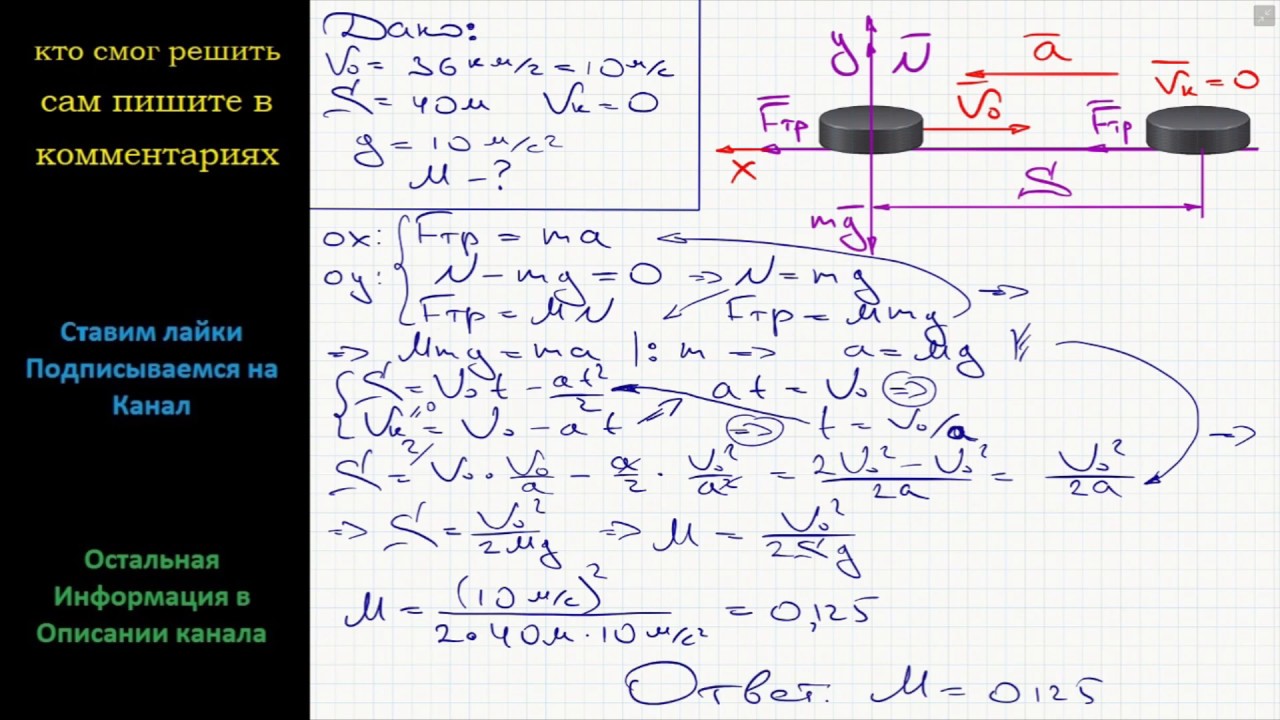 кто смог решить
сам пишите в
комментариях
Ставим лайки
Подписываемся на
Канал
Остальная
Информация в
Описании канала
Дано:
V₀ = 36 км/г = 10 м/с
S = 40 м Vк = 0
g = 10 м/с²
μ – ?
y N̅ a̅
V̅₀ V̅к = 0
F̅тр F̅тр
x S
mg̅
ox: { Fтр = ma
oy: N – mg = 0 => N = mg
Fтр = μN Fтр = μmg =>
=> μmg = ma |: m => a = μg
{ S = V₀t – at²/2 at = V₀ =>
Vк = V₀ – at => t = V₀/a =>
=0
S = V₀ · V₀/a – a/2 · V₀²/a² = 2V₀² – V₀²/2a = V₀²/2a
=> S = V₀²/2μg => μ = V₀²/2Sg
μ = (10 м/с)²/2·40м·10 м/с² = 0,125
Ответ: μ = 0,125